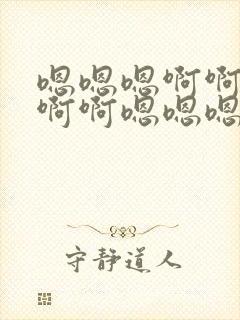 嗯嗯嗯啊啊
啊啊嗯嗯嗯
守静道人